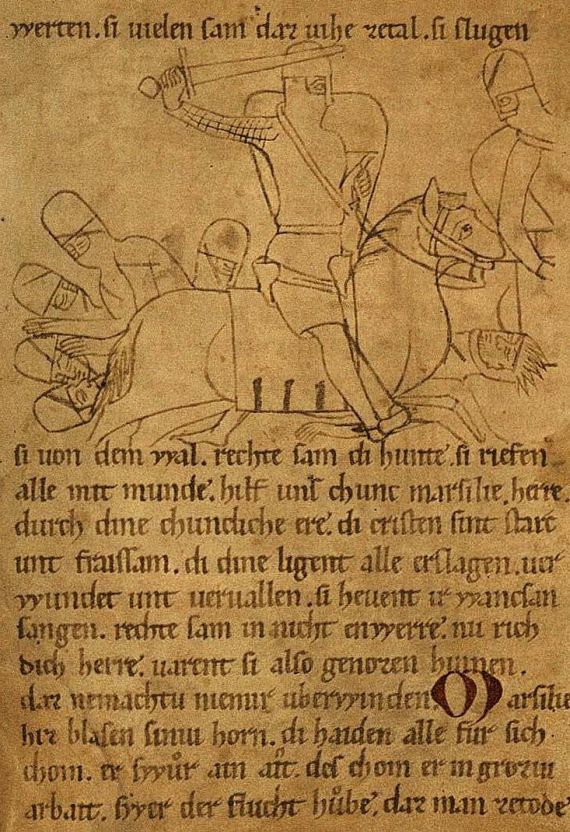 werten. si uielen sam daz uihe zetal. si slugen
si uon dem wal. rechte sam di hunte. si riefen
alle mit munde. hilf uns chunc marsilie. herre.
durch dine chunicliche ere. di cristen sint starc
unt fraissam. di dine ligent alle erslagen. uer
wundet unt ueruallen. si heuent ir wancsan
sangen. rechte sam in nicht enwerre. nu rich
dich herre. uarent si also genozen hinnen.
daz nemachtu niemir uberwinden. Marsilie
hiz blasen siniu horn. di haiden alle fur sich
chom. er swůr ain aît. des chom er in groziu
arbait. swer der flucht hůbe. daz man zetode